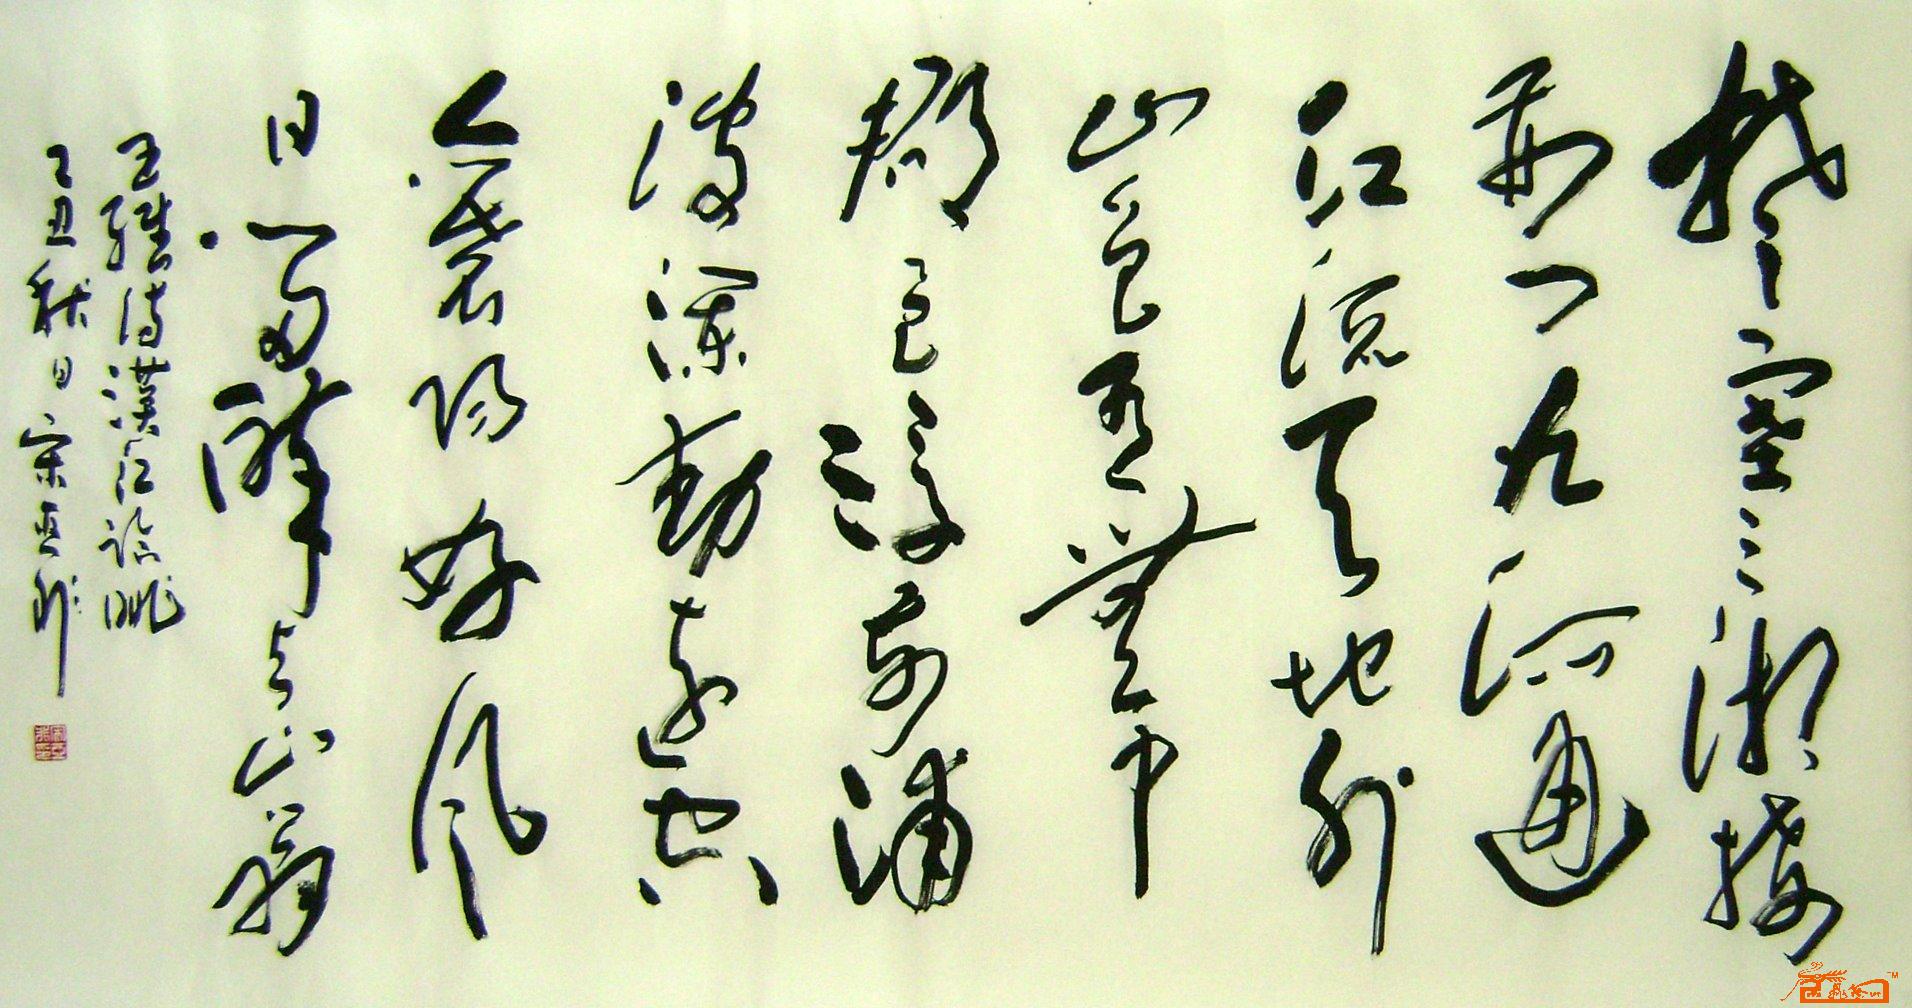 楚塞三湘接
荆门九河通
江流天地外
山色有無中
郡邑浮前浦
波瀾動遠空
襄阳好风
日留醉与山翁
王維诗漢江临眺
己丑秋日宋亚非